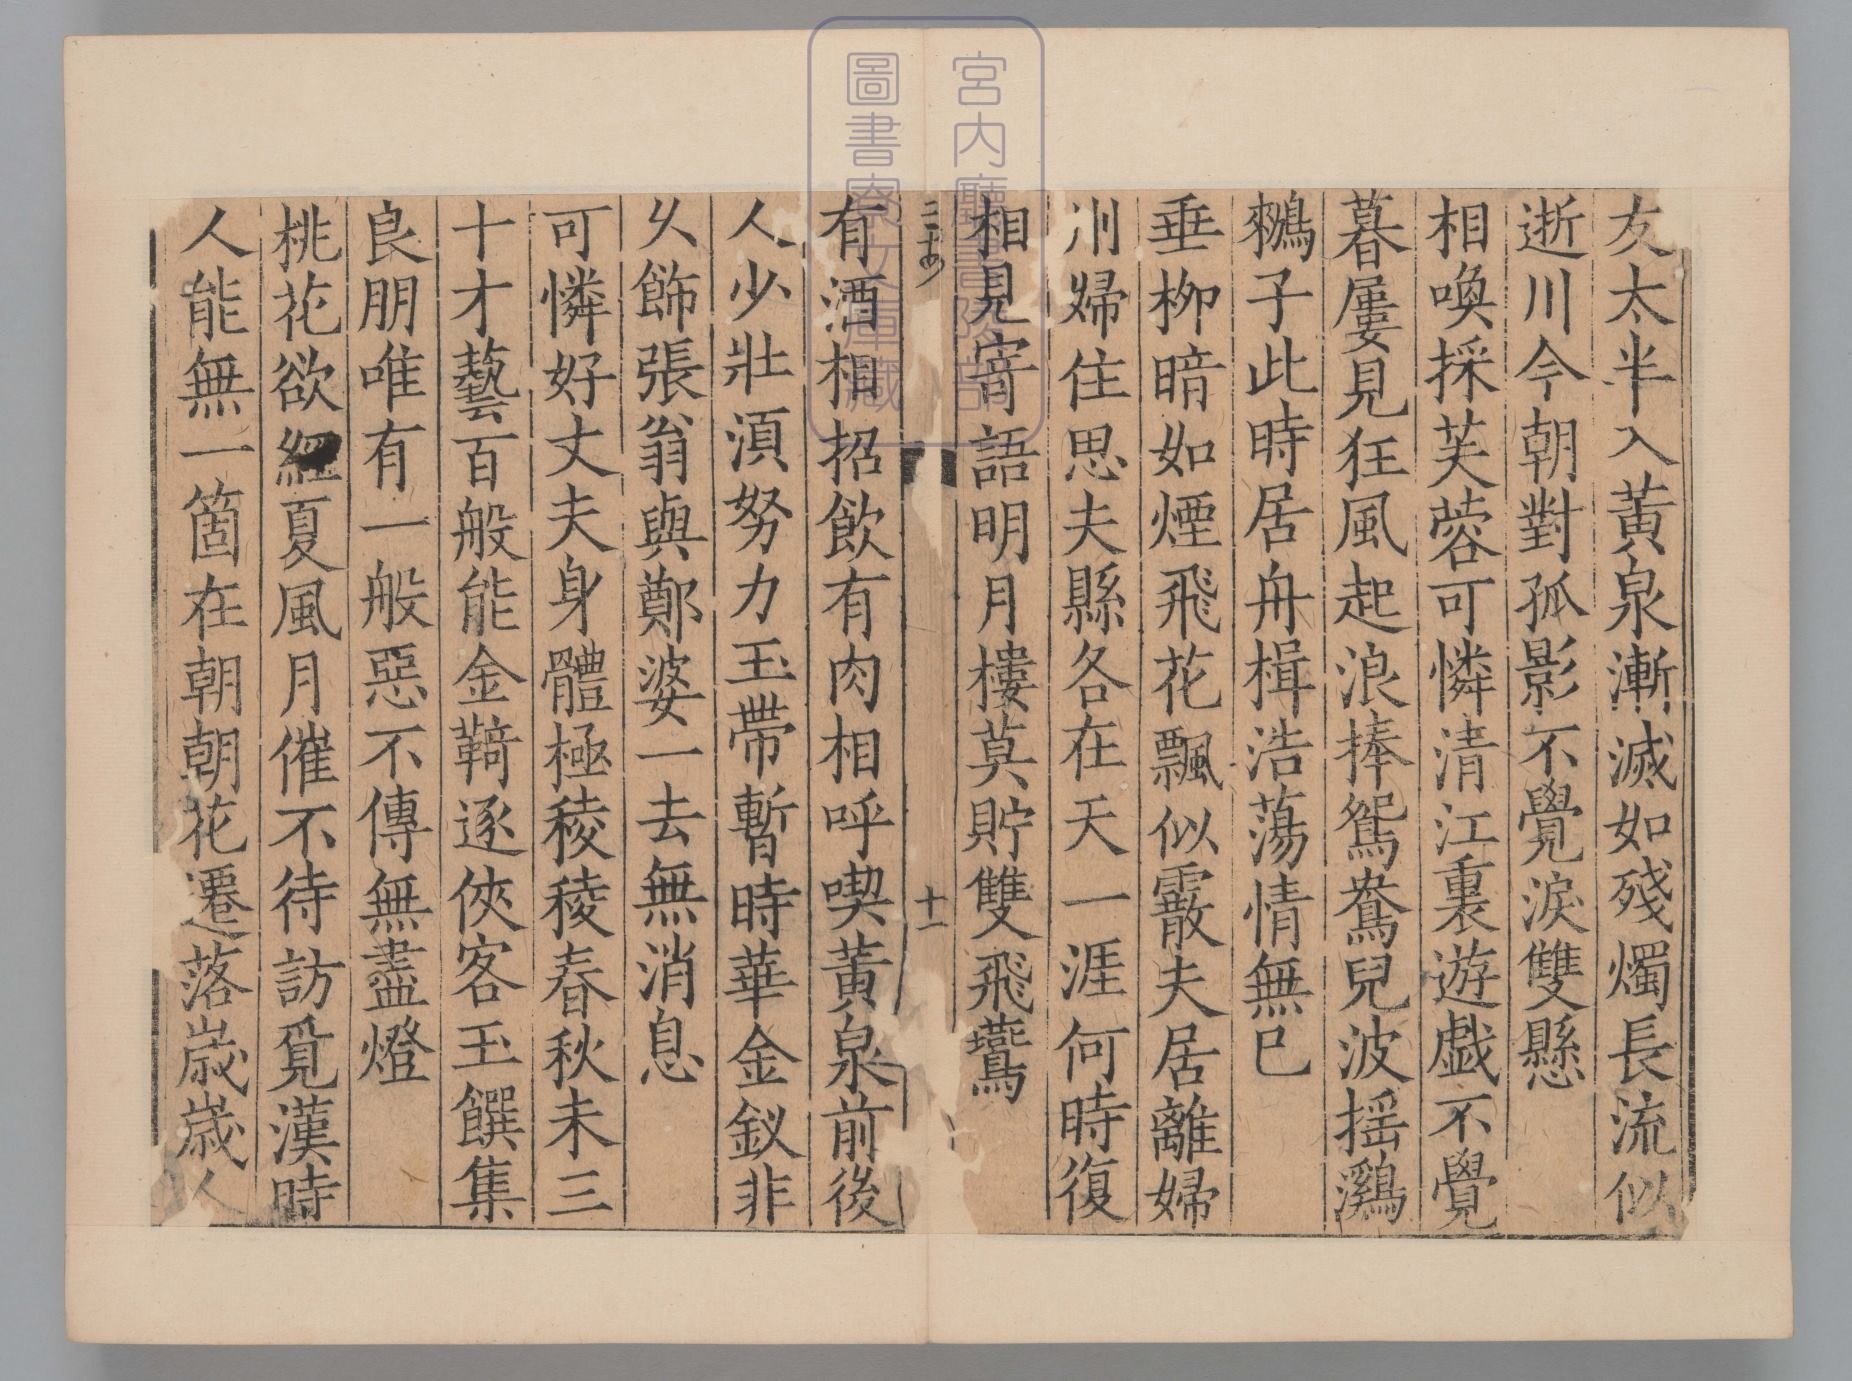 友太半入黃泉漸滅如殘燭長流似
逝川今朝對孤影不覺淚雙懸
相喚採芙蓉可憐清江裏遊戯不覺
暮屢見狂風起浪捧鴛鴦兒波揺鸂
鶒子此時居舟楫浩蕩情無已
垂柳暗如煙飛花飄似霰夫居離婦
州婦住思夫縣各在天一涯何時復
相見寄語明月樓莫貯雙飛鷰
十一
有酒相招飲有肉相呼喫黃泉前後
人少壯湏努力玉帶暫時華金釵非
久飾張翁與鄭婆一去無消息
可憐好丈夫身體極稜稜春秋未三
十才藝百般能金羇逐俠客玉饌集
良朋唯有一般惡不傳無盡燈
桃花欲經夏風月催不待訪覓漢時
人能無一箇在朝朝花遷落歲歲人
宮内廳書陵部
圖書寮文庫藏